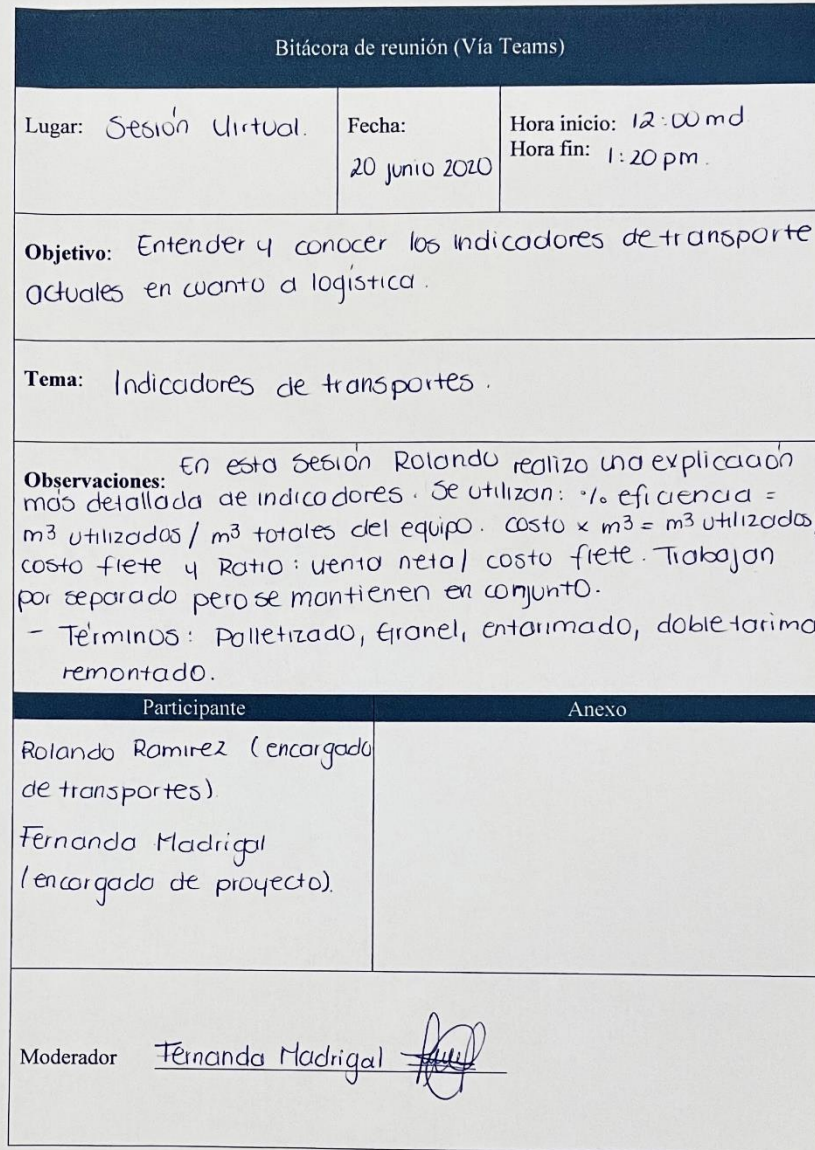 Bitácora de reunión (Vía Teams)
Lugar: Sesión Virtual.
Fecha:
20 junio 2020
Hora inicio: 12:00 md
Hora fin: 1:20 pm.
Objetivo: Entender y conocer los indicadores de transporte
actuales en cuanto a logística.
Tema: Indicadores de transportes.
Observaciones: En esta sesión Rolando realizo una explicación
más detallada de indicadores. Se utilizan: % eficiencia =
m³ utilizados / m³ totales del equipo. Costo x m³ = m³ utilizados/
costo flete y Ratio: venta neta/ costo flete. Trabajan
por separado pero se mantienen en conjunto.
- Términos: Palletizado, Granel, entarimado, doble tarima
remontado.
Participante
Anexo
Rolando Ramirez (encargado
de transportes)
Fernanda Madrigal
(encargada de proyecto).
Moderador Fernanda Madrigal